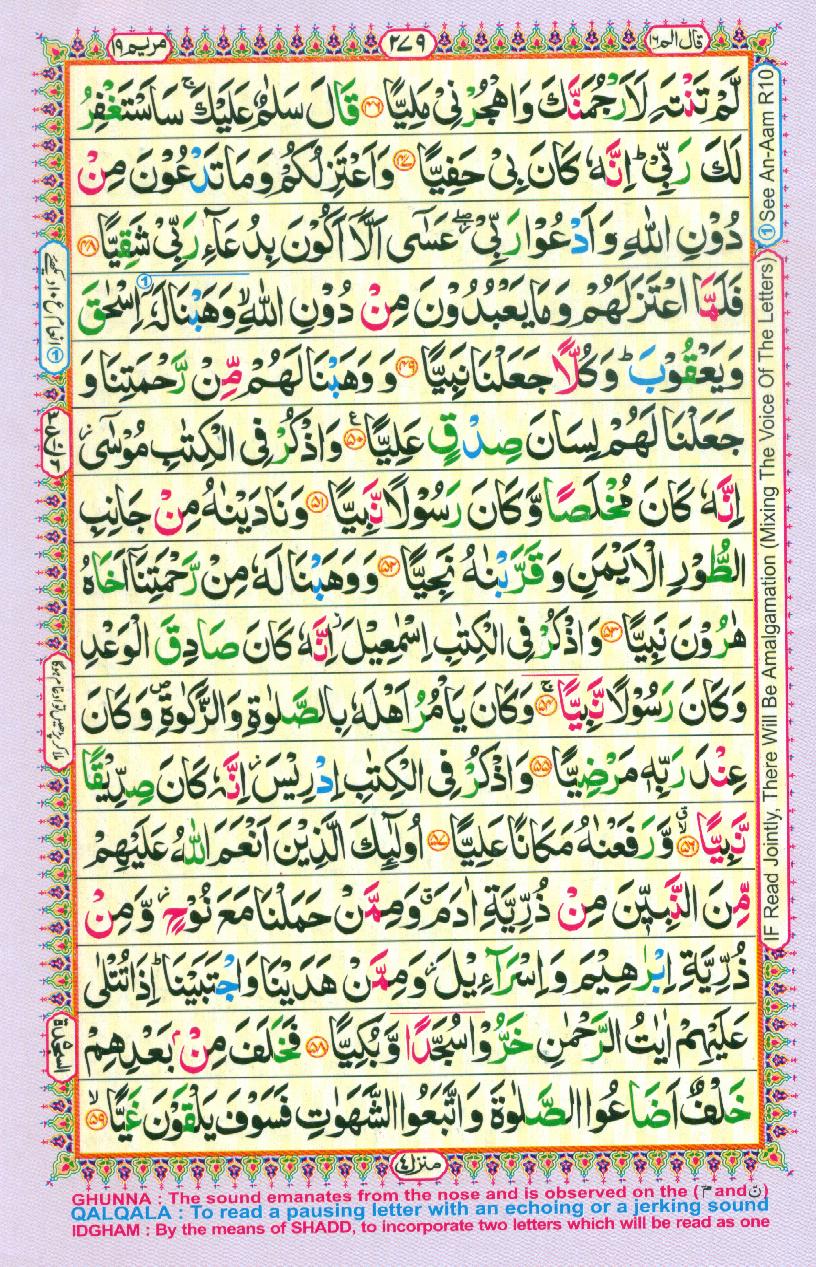 قال الم ١٦
٢٧٩
مریم ١٩
لَّمْ تَنْتَهِ لَاَرْجُمَنَّكَ وَاهْجُرْنِیْ مَلِیًّا ﴿٤٦﴾ قَالَ سَلٰمٌ عَلَیْكَ ۚ سَاَسْتَغْفِرُ
لَكَ رَبِّیْ ؕ اِنَّهٗ كَانَ بِیْ حَفِیًّا ﴿٤٧﴾ وَاَعْتَزِلُكُمْ وَمَا تَدْعُوْنَ مِنْ
دُوْنِ اللّٰهِ وَاَدْعُوْا رَبِّیْ ۖ عَسٰۤی اَلَّاۤ اَكُوْنَ بِدُعَآءِ رَبِّیْ شَقِیًّا ﴿٤٨﴾
فَلَمَّا اعْتَزَلَهُمْ وَمَا یَعْبُدُوْنَ مِنْ دُوْنِ اللّٰهِ ۙ وَهَبْنَا لَهٗۤ اِسْحٰقَ
وَیَعْقُوْبَ ؕ وَكُلًّا جَعَلْنَا نَبِیًّا ﴿٤٩﴾ وَوَهَبْنَا لَهُمْ مِّنْ رَّحْمَتِنَا وَ
جَعَلْنَا لَهُمْ لِسَانَ صِدْقٍ عَلِیًّا ﴿٥٠﴾ ع وَاذْكُرْ فِی الْكِتٰبِ مُوْسٰۤی ؗ
اِنَّهٗ كَانَ مُخْلَصًا وَّكَانَ رَسُوْلًا نَّبِیًّا ﴿٥١﴾ وَنَادَیْنٰهُ مِنْ جَانِبِ
الطُّوْرِ الْاَیْمَنِ وَقَرَّبْنٰهُ نَجِیًّا ﴿٥٢﴾ وَوَهَبْنَا لَهٗ مِنْ رَّحْمَتِنَاۤ اَخَاهُ
هٰرُوْنَ نَبِیًّا ﴿٥٣﴾ وَاذْكُرْ فِی الْكِتٰبِ اِسْمٰعِیْلَ ؗ اِنَّهٗ كَانَ صَادِقَ الْوَعْدِ
وَكَانَ رَسُوْلًا نَّبِیًّا ﴿٥٤﴾ ۚ وَكَانَ یَاْمُرُ اَهْلَهٗ بِالصَّلٰوةِ وَالزَّكٰوةِ ۪ وَكَانَ
عِنْدَ رَبِّهٖ مَرْضِیًّا ﴿٥٥﴾ وَاذْكُرْ فِی الْكِتٰبِ اِدْرِیْسَ ؗ اِنَّهٗ كَانَ صِدِّیْقًا
نَّبِیًّا ﴿٥٦﴾ ۗۙ وَّرَفَعْنٰهُ مَكَانًا عَلِیًّا ﴿٥٧﴾ اُولٰٓىِٕكَ الَّذِیْنَ اَنْعَمَ اللّٰهُ عَلَیْهِمْ
مِّنَ النَّبِیّٖنَ مِنْ ذُرِّیَّةِ اٰدَمَ ۗ وَمِمَّنْ حَمَلْنَا مَعَ نُوْحٍ ؗ وَّمِنْ
ذُرِّیَّةِ اِبْرٰهِیْمَ وَاِسْرَآءِیْلَ ؗ وَمِمَّنْ هَدَیْنَا وَاجْتَبَیْنَا ؕ اِذَا تُتْلٰی
عَلَیْهِمْ اٰیٰتُ الرَّحْمٰنِ خَرُّوْا سُجَّدًا وَّبُكِیًّا ﴿٥٨﴾ فَخَلَفَ مِنْۢ بَعْدِهِمْ
خَلْفٌ اَضَاعُوا الصَّلٰوةَ وَاتَّبَعُوا الشَّهَوٰتِ فَسَوْفَ یَلْقَوْنَ غَیًّا ﴿٥٩﴾ ۙ
منزل ٤
① See An-Aam R10
IF Read Jointly, There Will Be Amalgamation (Mixing The Voice Of The Letters)
السجدة
GHUNNA : The sound emanates from the nose and is observed on the (م and ن)
QALQALA : To read a pausing letter with an echoing or a jerking sound
IDGHAM : By the means of SHADD, to incorporate two letters which will be read as one